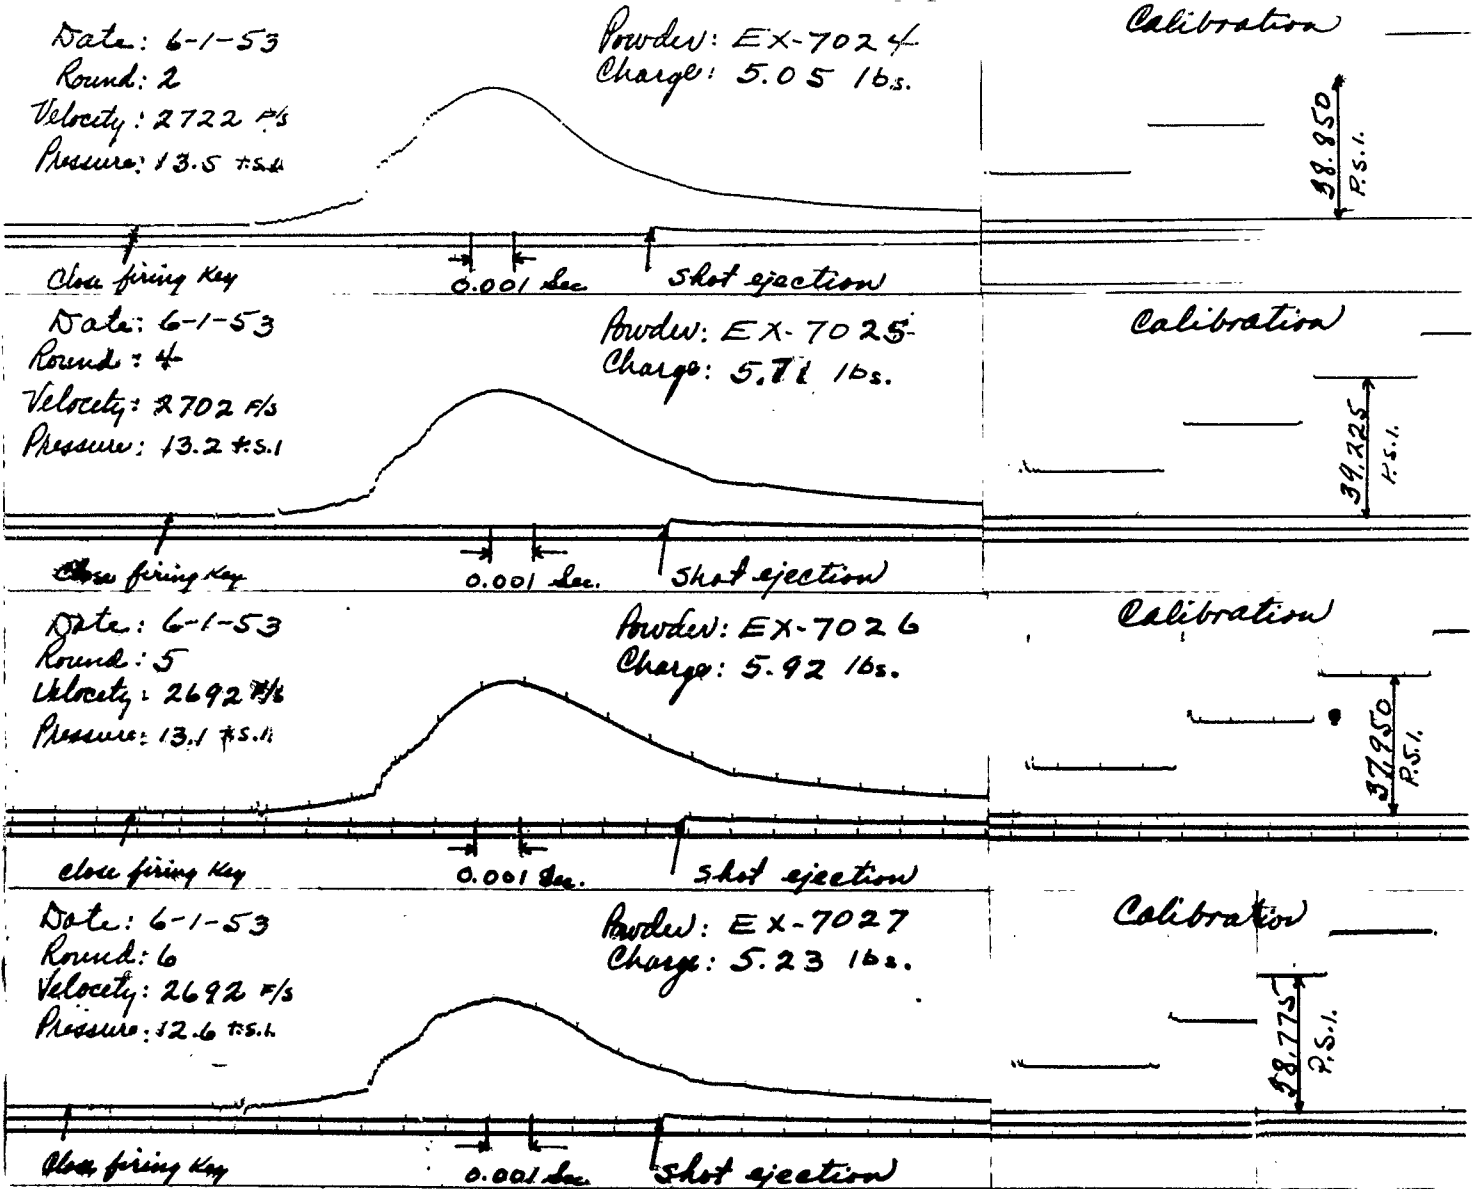 Date: 6-1-53
Round: 2
Velocety: 2722 F/s
Pressure: 13.5 t.s.i.
Powder: EX-7024
Charge: 5.05 lbs.
Calibration
38.850
P.s.i.
Close firing Key
0.001 Sec
Shot ejection
Date: 6-1-53
Round: 4
Velocety: 2702 F/s
Pressure: 13.2 t.s.i
Powder: EX-7025
Charge: 5.71 lbs.
Calibration
39,225
P.s.i.
Close firing Key
0.001 Sec.
Shot ejection
Date: 6-1-53
Round: 5
Velocety: 2692 F/s
Pressure: 13.1 t.s.i.
Powder: EX-7026
Charge: 5.92 lbs.
Calibration
37,950
P.S.i.
Close firing Key
0.001 Sec.
Shot ejection
Date: 6-1-53
Round: 6
Velocety: 2692 F/s
Pressure: 12.6 t.s.i.
Powder: EX-7027
Charge: 5.23 lbs.
Calibration
38,775
P.S.i.
Close firing Key
0.001 Sec
Shot ejection